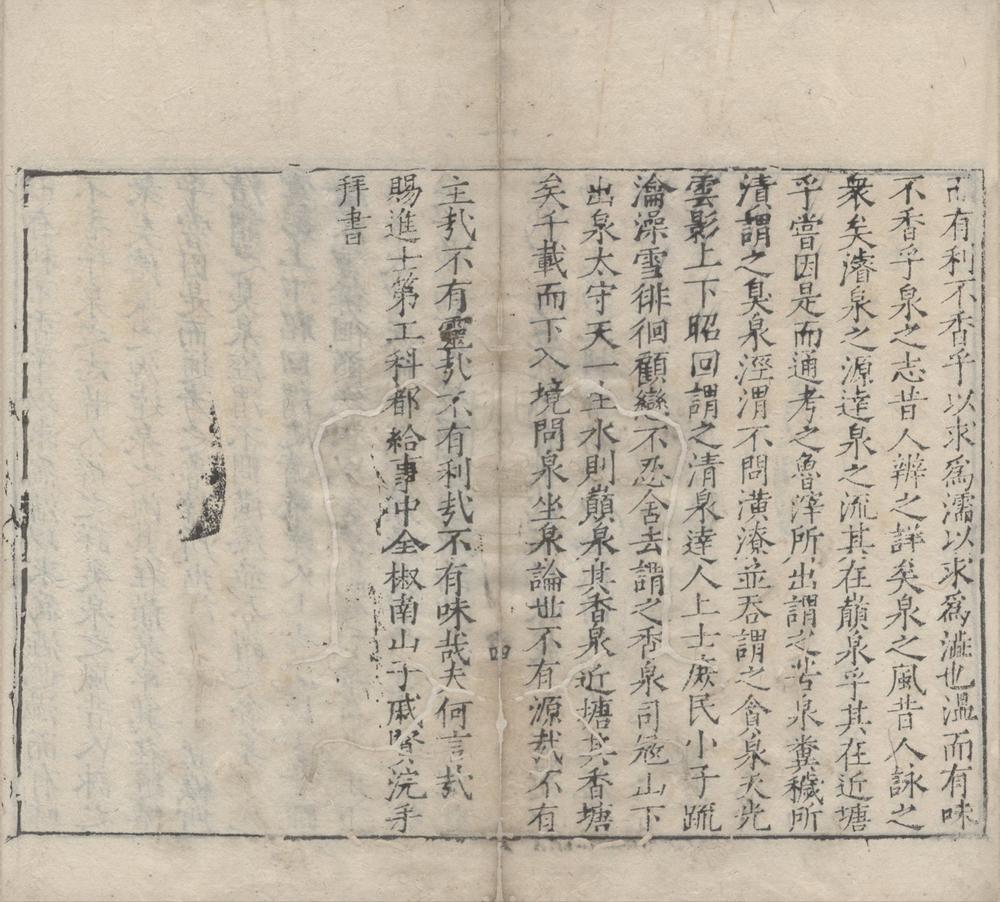 而有利不香乎以求爲濡以求爲漑也溫而有味
不香乎泉之志昔人辨之詳矣泉之風昔人詠之
衆矣濬泉之源達泉之流其在巔泉乎其在近塘
乎嘗因是而通考之魯滓所出謂之苦泉糞穢所
漬謂之臭泉涇渭不問潢潦並吞謂之貪泉天光
雲影上下昭回謂之清泉達人上士庶民小子䟽
瀹澡雪徘徊顧戀不忍舍去謂之香泉司冠山下
出泉太守天一生水則巔泉其香泉近塘其香塘
矣千載而下入境問泉坐泉論世不有源哉不有
四
主哉不有靈哉不有利哉不有味哉夫何言哉
賜進士第工科都給事中全椒南山子戚賢浣手
拜書